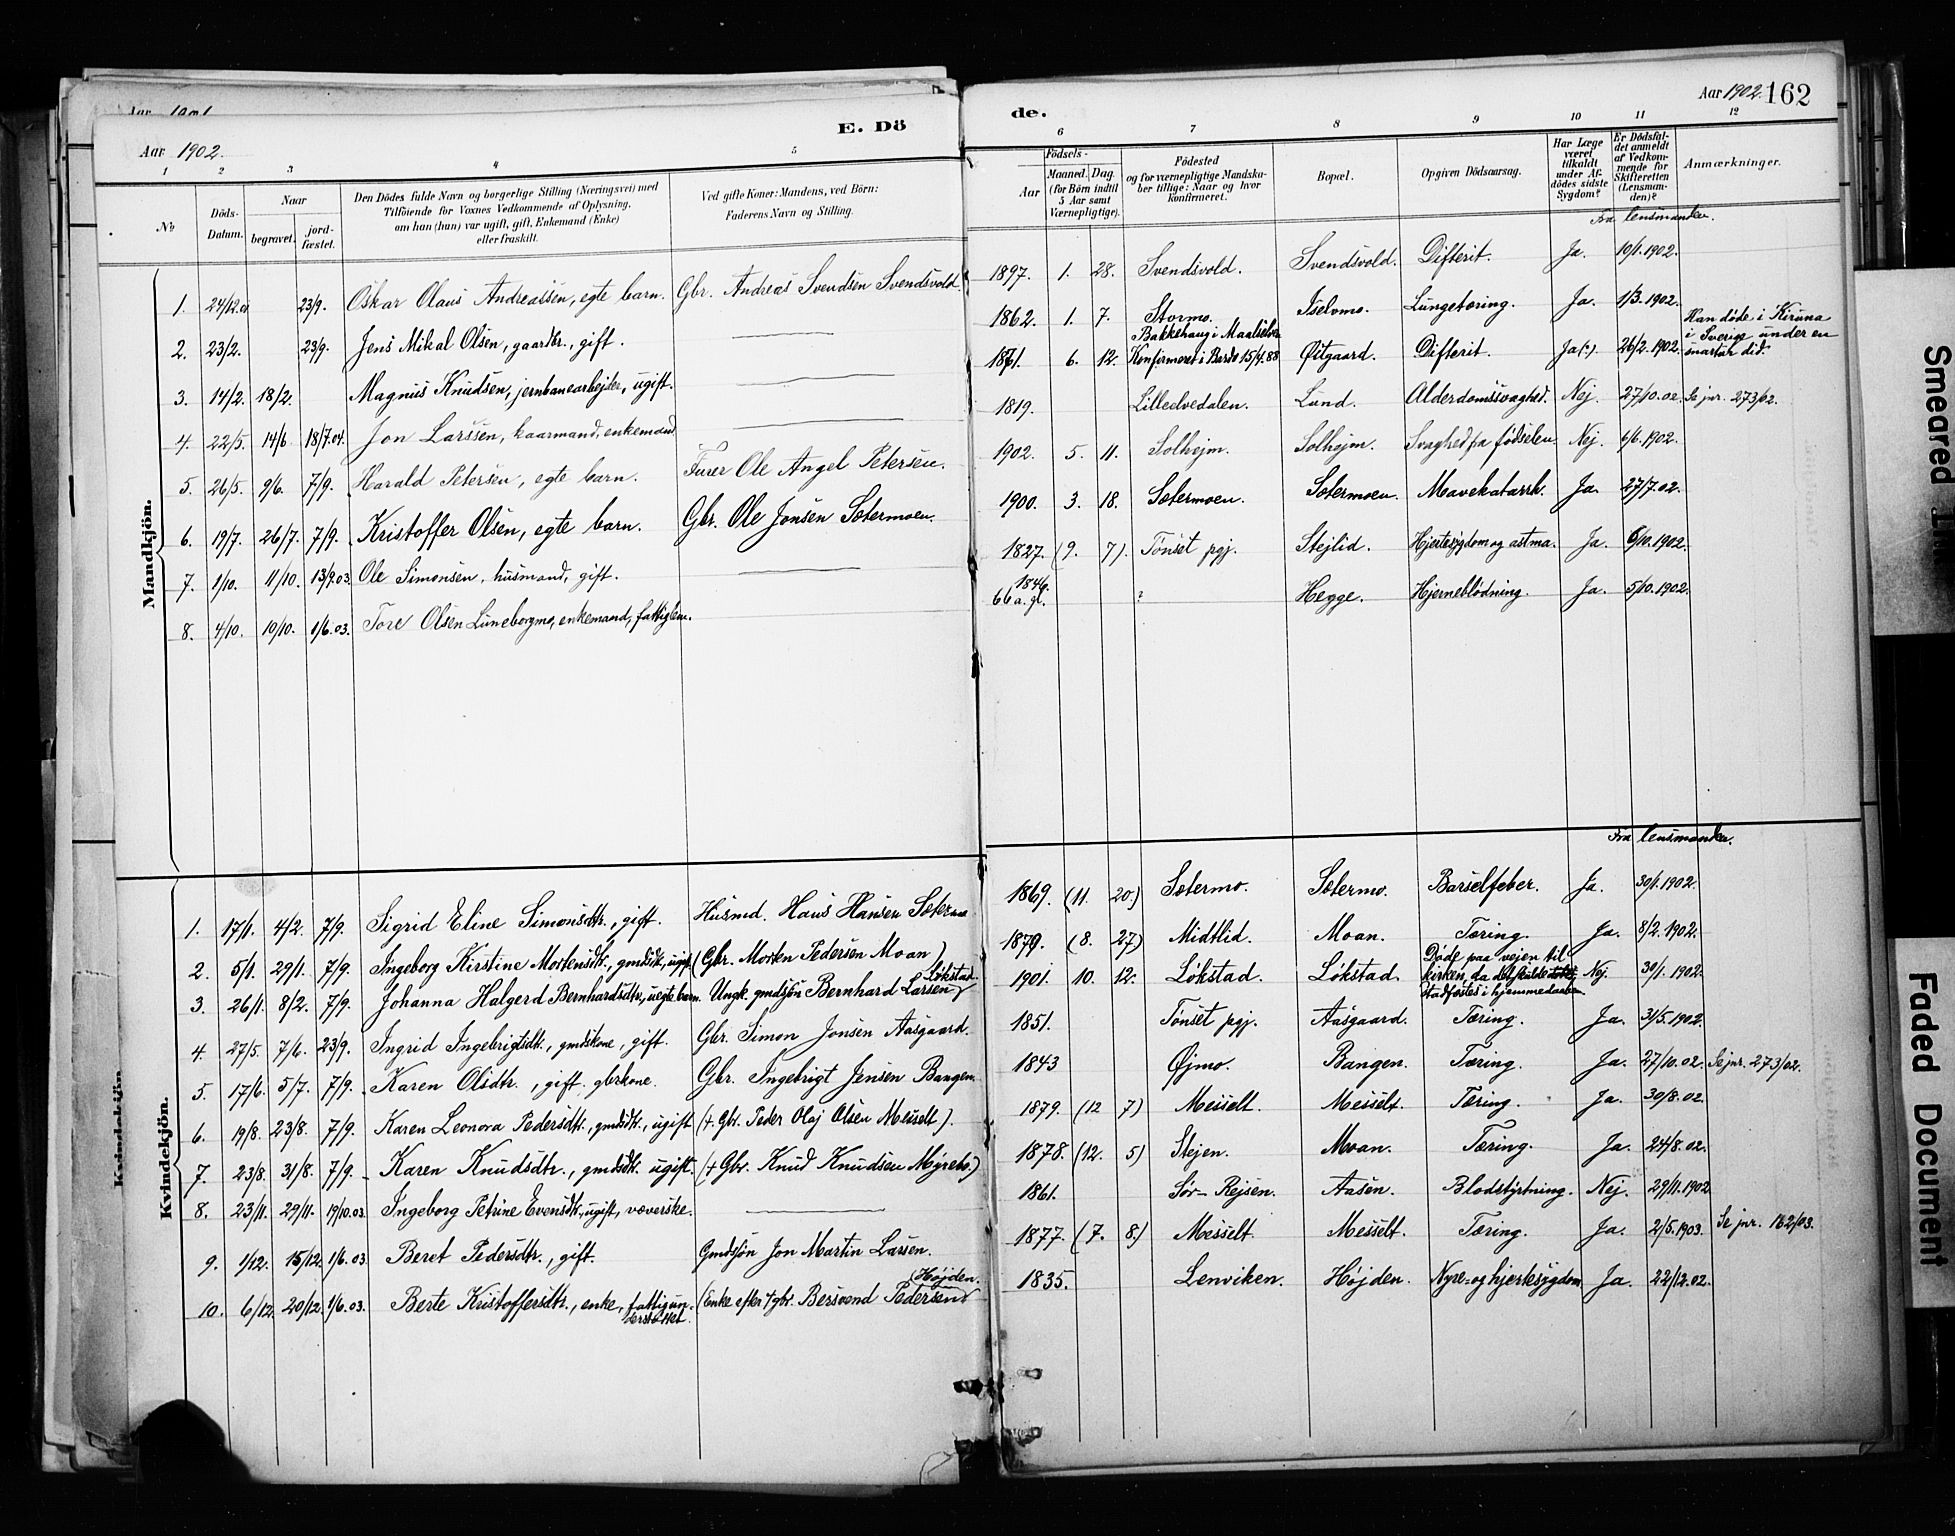 Aar 1901
E. Dö
de.
Aar 1902.
Aar 1902. 162
1 2 3 4 5 6 7 8 9 10 11 12
№
Döds-Datum.
Naar
begravet.
jord-fæstet.
Den Dödes fulde Navn og borgerlige Stilling (Næringsvei) med
Tilföiende for Voxnes Vedkommende af Oplysning,
om han (hun) var ugift, gift, Enkemand (Enke)
eller fraskilt.
Ved gifte Koner: Mandens, ved Börn:
Faderens Navn og Stilling.
Födsels-
Aar
Maaned. Dag.
(for Börn indtil
5 Aar samt
Værnepligtige).
Födested
og for værnepligtige Mandska-
ber tillige: Naar og hvor
konfirmeret.
Bopæl.
Opgiven Dödsaarsag.
Har Læge
været
tilkaldt
under Af-
dödes sidste
Sygdom?
Er Dödsfal-
det anmeldt
af Vedkom-
mende for
Skifteretten
(Lensman-
den)?
Anmærkninger.
Fra lensmanden.
Mandkjön.
1. 24/12.01 23/9. Oskar Olaus Andreassen, egte barn. Gbr. Andreas Svendsen Svendsvold. 1897. 1. 28. Svendsvold. Svendsvold. Difterit. Ja. 10/1.1902.
2. 23/2. 23/9. Jens Mikal Olsen, gaardbr., gift. 1862. 1. 7. Stormo. Iselvmo. Lungetæring. Ja. 1/3.1902.
3. 14/2. 18/2. Magnus Knudsen, jernbanearbejder, ugift. 1871. 6. 12. Bakkehaug i Maalselven Konfirmeret i Bardo 15/7.88 Østgaard. Difterit. Ja(?) 26/2.1902. Han døde i Kiruna i Sverige under en snartur did.
4. 22/5. 14/6. 18/7.04. Jon Larssen, kaarmand, enkemand. 1819. Lilleelvedalen. Lund. Alderdomssvaghed. Nej. 27/10.02. Se jnr. 273/02.
5. 26/5. 9/6. 7/9. Harald Petersen, egte barn. Furer Ole Angel Petersen. 1902. 5. 11. Solhejm. Solhejm. Svaghed fra fødselen Nej. 6/6.1902.
6. 19/7. 26/7. 7/9. Kristoffer Olsen, egte barn. Gbr. Ole Jonsen Sætermoen. 1900. 3. 18. Sætermoen. Sætermoen. Mavekatarrh. Ja. 27/7.02.
7. 1/10. 11/10. 13/9.03. Ole Simonsen, husmand, gift. 1827. (9. 7). Tønset pgj. Stejlid. Hjertesygdom og astma. Ja. 6/10.1902.
8. 4/10. 10/10. 1/6.03. Tore Olsen Luneborgmo, enkemand, fattiglem. 1846. 66 a. gl. ? Hegge. Hjerneblødning. Ja. 5/10.1902.
Fra lensmanden.
Kvindekjön.
Kvindekjön.
1. 17/1. 4/2. 7/9. Sigrid Eline Simonsdtr., gift. Husmd. Hans Hansen Sætermo 1869. (11. 20.) Sætermo. Sætermo. Barselfeber. Ja. 30/1.1902.
2. 5/1. 29/1. 7/9. Ingeborg Kirstine Mortensdtr., gmdsdtr., ugift (Gbr. Morten Pedersen Moan) 1879. (8. 27) Midtlid. Moan. Tæring. Ja. 8/2.1902.
3. 26/1. 8/2. 7/9. Johanna Halgerd Bernhardsdtr., uegte barn. Ungk. gmdsøn Bernhard Larsen Løkstad. 1901. 10. 12. Løkstad. Løkstad. Døde paa vejen til kirken, da det skulde stadfæstes i hjemmedaaben Nej. 30/1.1902.
4. 27/5. 7/6. 23/9. Ingrid Ingebrigtsdtr., gmdskone, gift. Gbr. Simon Jonsen Aasgaard. 1851. Tønset pgj. Aasgaard. Tæring. Ja. 31/5.1902.
5. 17/6. 5/7. 7/9. Karen Olsdtr., gift gbrkone. Gbr. Ingebrigt Jensen Bangen. 1843 Øjmo. Bangen. Tæring. Ja. 27/10.02. Se jnr. 273/02.
6. 19/8. 23/8. 7/9. Karen Leonora Pedersdtr., gmdsdtr., ugift (+ Gbr. Peder Olaj Olsen Messelt). 1879. (12 7) Messelt. Messelt. Tæring. Ja. 30/8.02.
7. 23/8. 31/8. 7/9. Karen Knudsdtr., gmdsdtr. ugift. (+ Gbr. Knud Knudsen Myrebo.) 1878. (12. 5) Stejen. Moan. Tæring. Ja. 24/8.02.
8. 23/11. 29/11. 19/10.03. Ingeborg Petrine Evensdtr., ugift, væverske. 1861. Sør-Rejsen. Aasen. Blodstyrtning. Nej. 29/11.1902
9. 1/12. 15/12. 1/6.03. Beret Pedersdtr., gift. Gmdssøn Jon Martin Larsen. 1877. (7. 8.) Messelt. Messelt. Tæring. Ja. 2/5.1903. Se jnr. 162/03.
10. 6/12. 20/12. 1/6.03. Berte Kristoffersdtr., enke, fattigunderstøttet. (Enke efter + gbr. Bersvend Pedersen Højden. 1835. Lenviken. Højden. Nyre- og hjertesygdom Ja. 22/12.02.
Smeared
Faded Document